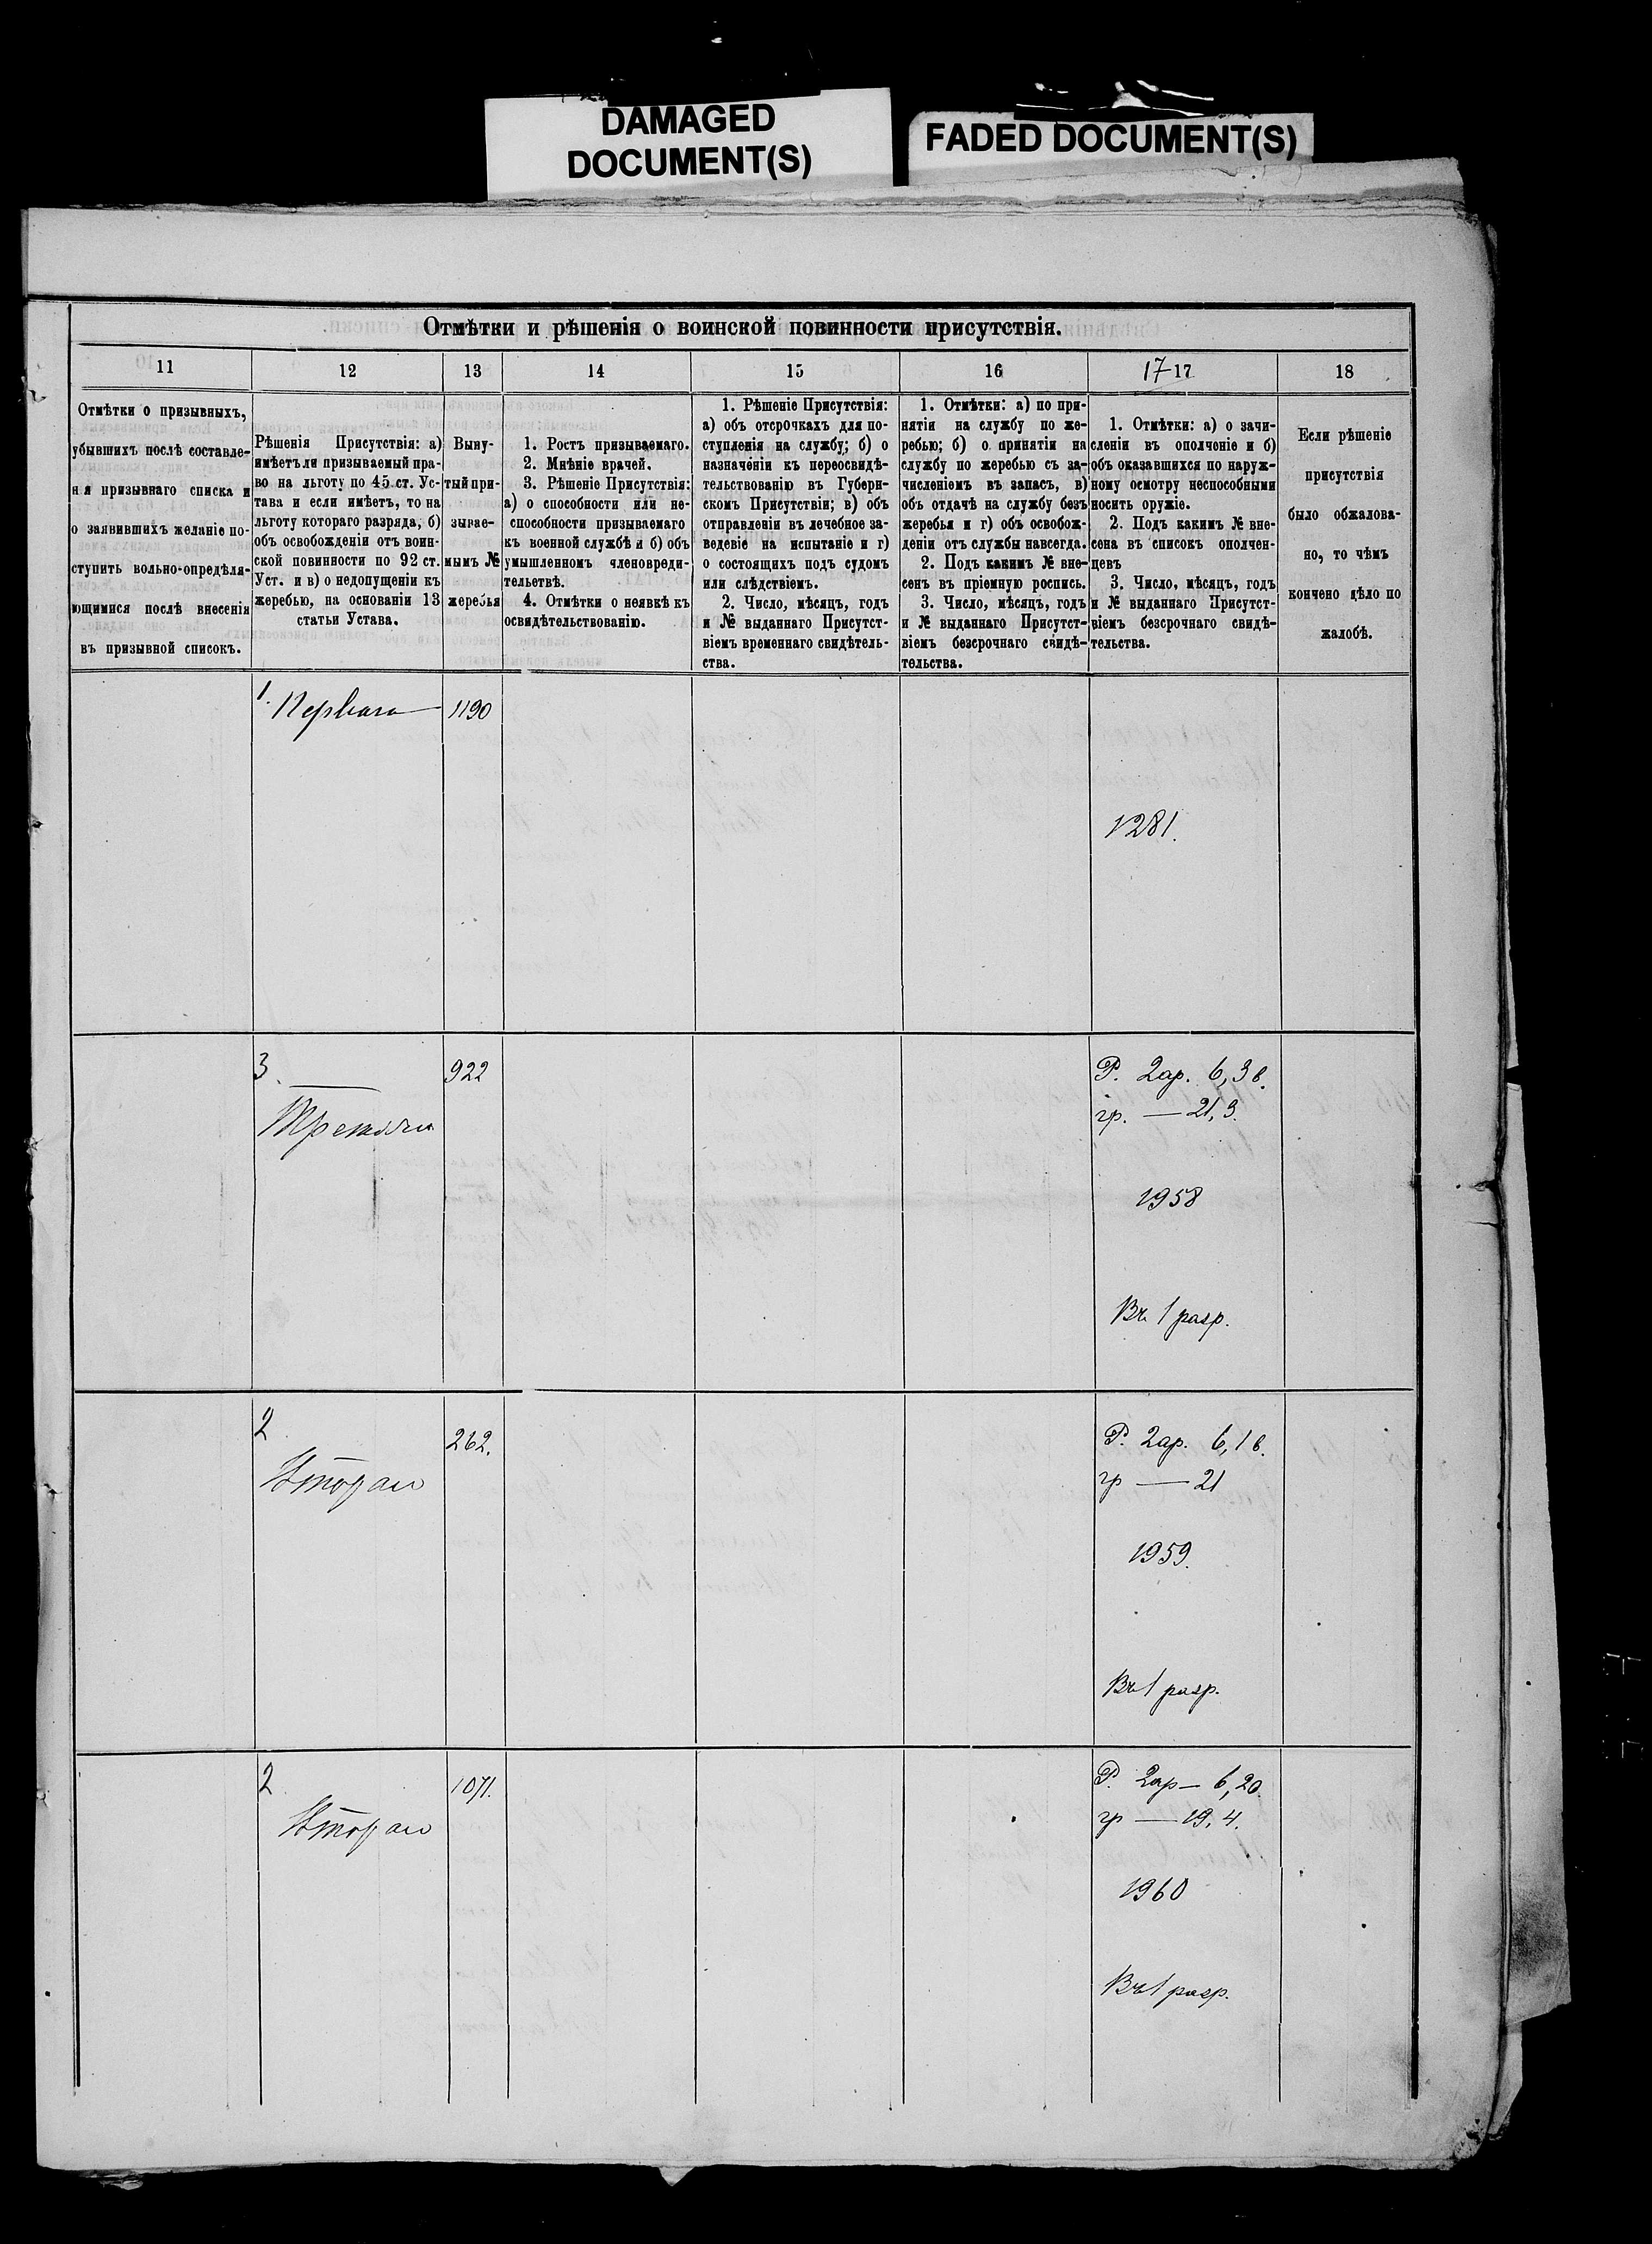 DAMAGED
DOCUMENT(S)
FADED DOCUMENT(S)
Отмѣтки и рѣшенія о воинской повинности присутствія.
11
12
13
14
15
16
17 17
18
Отмѣтки о призывныхъ,
убывшихъ послѣ составле-
нія призывнаго списка и
о заявившихъ желаніе по-
ступить вольно-опредѣля-
ющимися послѣ внесенія
въ призывной списокъ.
Рѣшенія Присутствія: а)
имѣетъ ли призываемый пра-
во на льготу по 45 ст. Ус-
тава и если имѣетъ, то на
льготу котораго разряда, б)
объ освобожденіи отъ воин-
ской повинности по 92 ст.
Уст. и в) о недопущеніи къ
жеребью, на основаніи 13
статьи Устава.
Выну-
тый при-
зывае-
мымъ №
жеребья
1. Ростъ призываемаго.
2. Мнѣніе врачей.
3. Рѣшеніе Присутствія:
а) о способности или не-
способности призываемаго
къ военной службѣ и б) объ
умышленномъ членовреди-
тельствѣ.
4. Отмѣтки о неявкѣ къ
освидѣтельствованію.
1. Рѣшеніе Присутствія:
а) объ отсрочкахъ для по-
ступленія на службу; б) о
назначеніи къ переосвидѣ-
тельствованію въ Губерн-
скомъ Присутствіи; в) объ
отправленіи въ лечебное за-
веденіе на испытаніе и г)
о состоящихъ подъ судомъ
или слѣдствіемъ.
2. Число, мѣсяцъ, годъ
и № выданнаго Присутст-
віемъ временнаго свидѣтель-
ства.
1. Отмѣтки: а) по при-
нятіи на службу по же-
ребью; б) о принятіи на
службу по жеребью съ за-
численіемъ въ запасъ, в)
объ отдачѣ на службу безъ
жеребья и г) объ освобож-
деніи отъ службы навсегда.
2. Подъ какимъ № вне-
сенъ въ пріемную роспись.
3. Число, мѣсяцъ, годъ
и № выданнаго Присутст-
віемъ безсрочнаго свидѣ-
тельства.
1. Отмѣтки: а) о зачи-
сленіи въ ополченіе и б)
объ оказавшихся по наруж-
ному осмотру неспособными
носить оружіе.
2. Подъ какимъ № вне-
сена въ списокъ ополчен-
цевъ
3. Число, мѣсяцъ, годъ
и № выданнаго Присутст-
віемъ безсрочнаго свидѣ-
тельства.
Если рѣшеніе
присутствія
было обжалова-
но, то чѣмъ
кончено дѣло по
жалобѣ.
1. Перваго
1190
1281.
3.
Третьяго
922
Р. 2ар. 6,3 в.
гр. — 21,3.
1958
Въ 1 разр.
2
Втораго
262.
Р. 2ар. 6,1 в.
гр — 21
1959.
Въ 1 разр.
2
Втораго
1071.
Р. 2ар — 6,20.
гр — 19,4.
1960
Въ 1 разр.